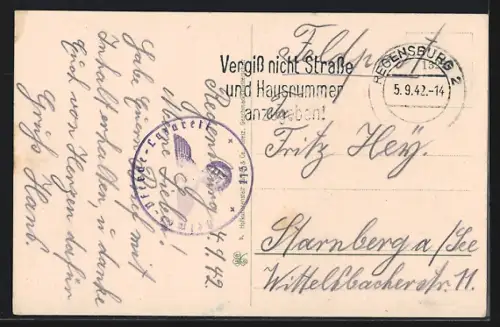 Regensburg 4.9.42.
Meine Lieben!
Habe Euern Brief mit
Inhalt erhalten, u. danke
Euch von Herzen dafür
Gruß Hans.
Feldpost
Vergiß nicht Straße
und Hausnummer
anzugeben!
REGENSBURG 2
5.9.42.-14
Fritz Hey.
Starnberg a/See
Wittelsbacherstr. 11.